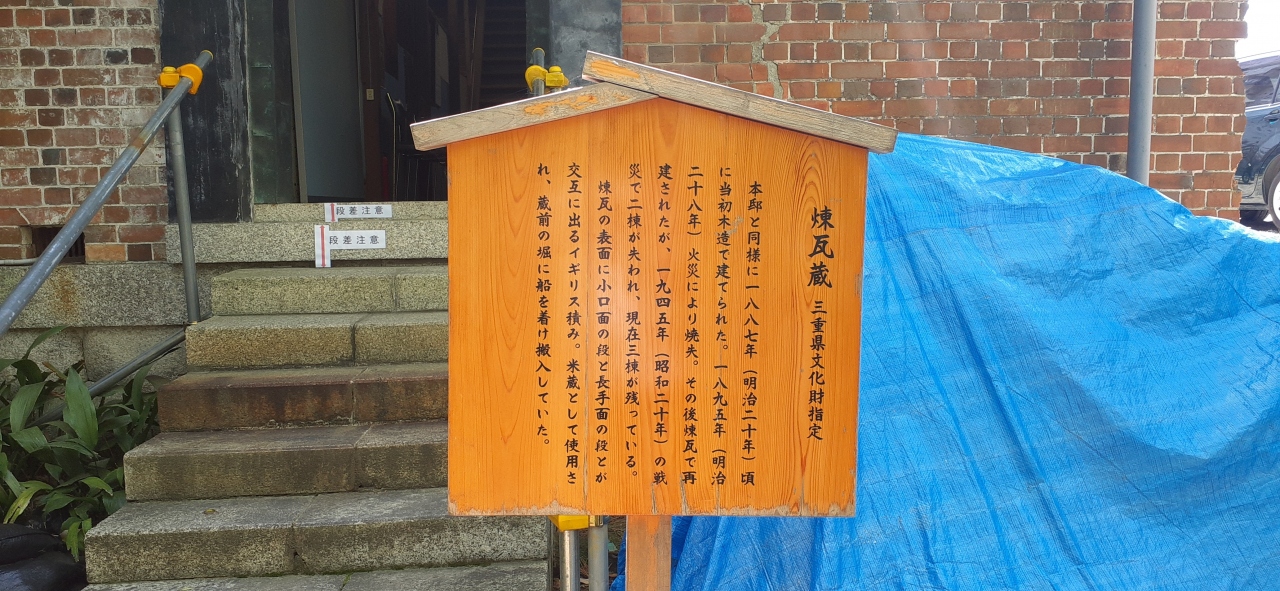 煉瓦蔵 三重県文化財指定
本邸と同様に一八八七年（明治二十年）頃
に当初木造で建てられた。一八九五年（明治
二十八年）火災により焼失。その後煉瓦で再
建されたが、一九四五年（昭和二十年）の戦
災で二棟が失われ、現在三棟が残っている。
煉瓦の表面に小口面の段と長手面の段とが
交互に出るイギリス積み。米蔵として使用さ
れ、蔵前の堀に船を着け搬入していた。
段差注意
段差注意